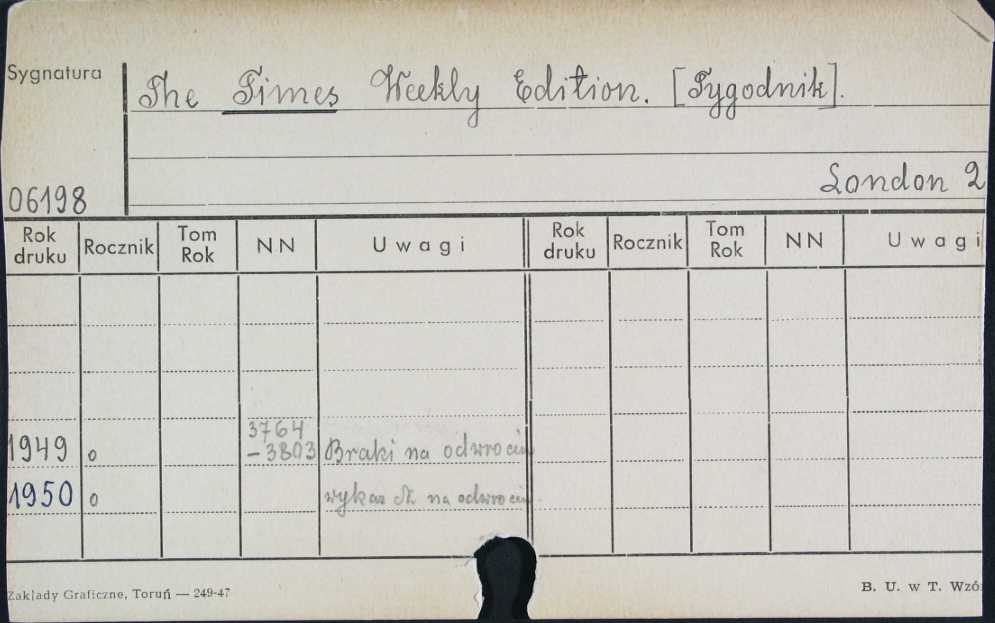 Sygnatura
The Times Weekly Edition. [Tygodnik].
London 2
06198
Rok druku Rocznik Tom Rok NN Uwagi Rok druku Rocznik Tom Rok NN Uwagi
3764
1949 o -3803 Braki na odwrociu
1950 o wykaz na odwrociu
Zakłady Graficzne, Toruń — 249-47
B. U. w T. Wzór